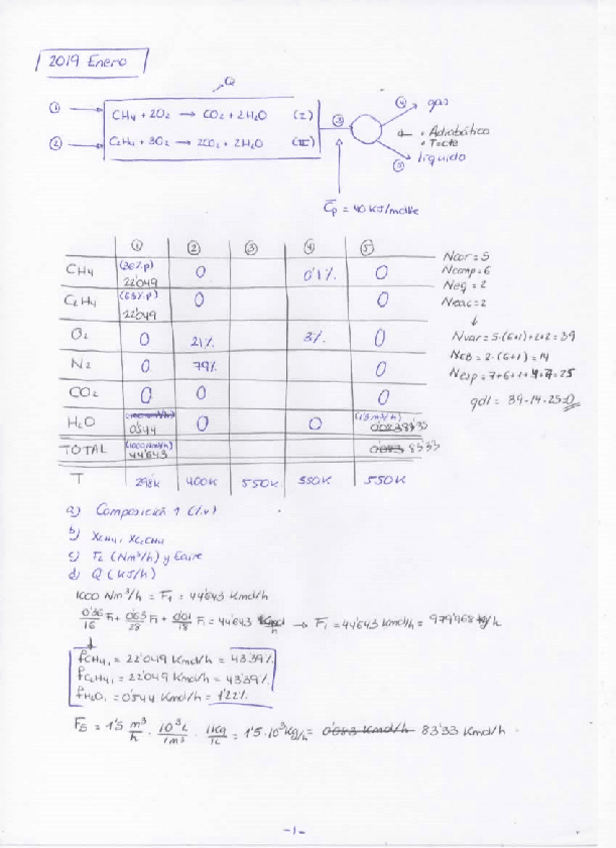 2019 Enero
Q
① CH4 + 2O2 → CO2 + 2H2O (I)
② C2H4 + 3O2 → 2CO2 + 2H2O (II)
③
④ gas
• Adiabático
• T=cte
⑤ líquido
Cp = 40 KJ/molKe
① ② ③ ④ ⑤
CH4 (36%p) 22'049 0 0'1% 0
C2H4 (63%p) 22'049 0 0
O2 0 21% 3% 0
N2 0 79% 0
CO2 0 0 0
H2O 0'544 0 0 (1'5 m3/h) 83'33
TOTAL (1000 Nm3/h) 44'643 0'083 8333
T 298K 400K 550K 550K 550K
Ncor = 5
Ncomp = 6
Neq = 2
Nreac = 2
↓
Nvar = 5·(6+1)+2+2 = 39
NEB = 2·(6+1) = 14
Nesp = 7+6+1+4+7 = 25
gdl = 39-14-25 = 0
a) Composición 1 (%v)
b) XCH4, XC2H4
c) F2 (Nm3/h) y Eaire
d) Q (KJ/h)
1000 Nm3/h = F1 = 44'643 Kmol/h
0'36/16 F1 + 0'63/28 F1 + 0'01/18 F1 = 44'643 Kmol/h → F1 = 44'643 Kmol/h = 979'968 kg/h
↓
fCH4,1 = 22'049 Kmol/h = 43'39%
fC2H4,1 = 22'049 Kmol/h = 43'39%
fH2O,1 = 0'544 Kmol/h = 1'22%
F5 = 1'5 m3/h · 10^3 L/1m3 · 1Kg/1L = 1'5·10^3 Kg/h = 0'083 Kmol/h 83'33 Kmol/h
-1-